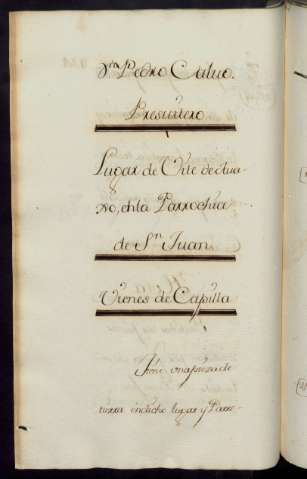 Dn Pedro
Presvitero
Lugar de Orto de
ro, en la Parrochia
de Sn Juan.
Vienes de Capilla
Tiene una pieza de
tierra en dicho lugar y Parro-